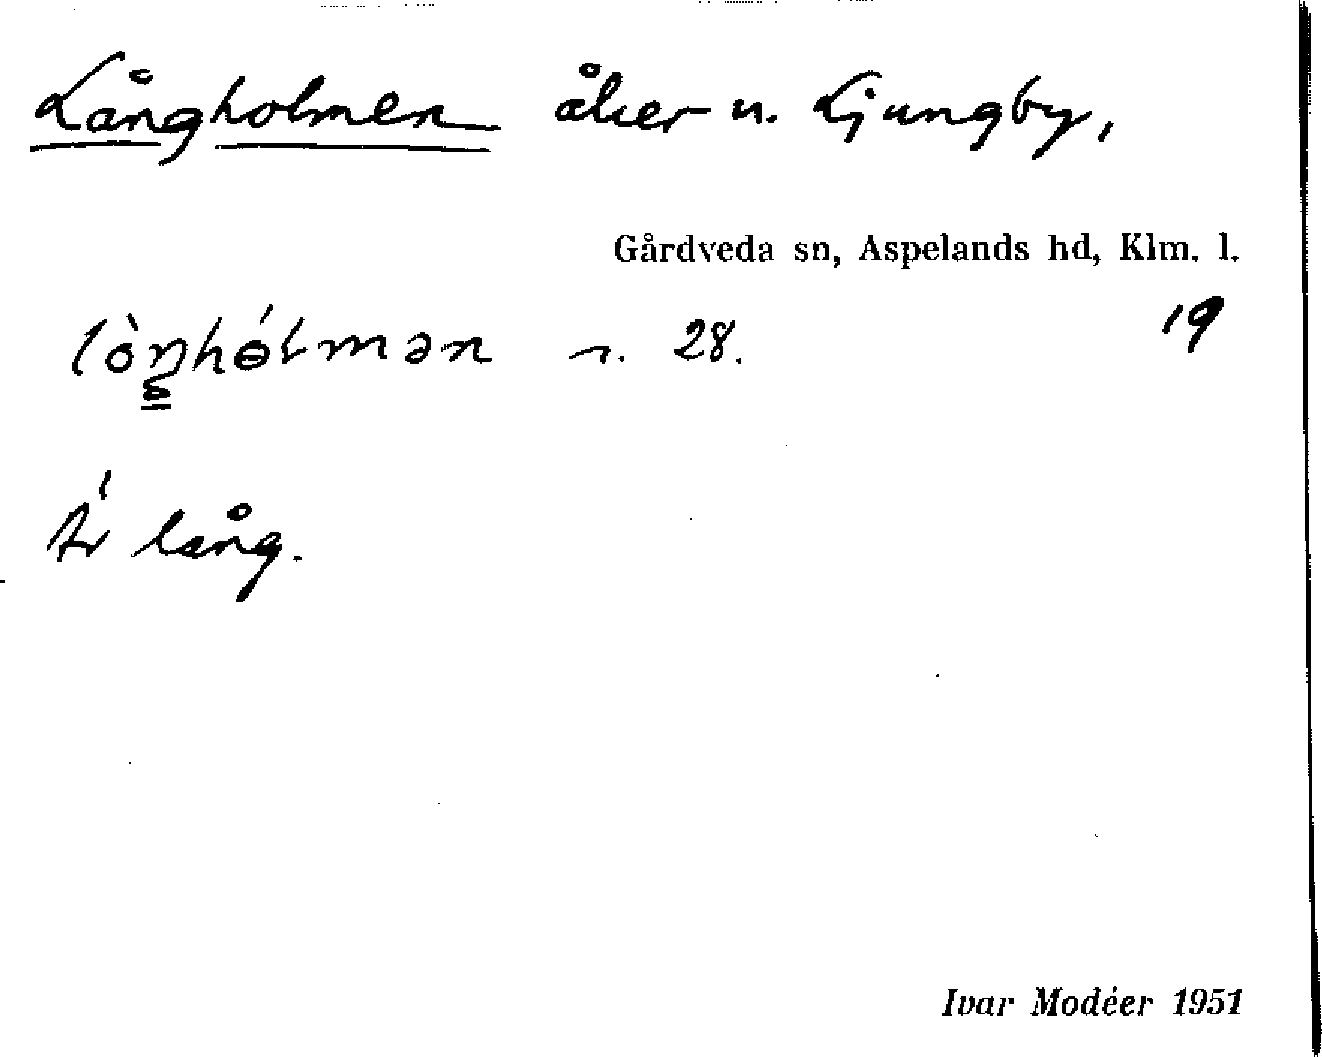 Långholmen åker u. Ljungby,
Gårdveda sn, Aspelands hd, Klm. l.
lòŋhɵ́lmən r. 28.
19
Är lång.
Ivar Modéer 1951